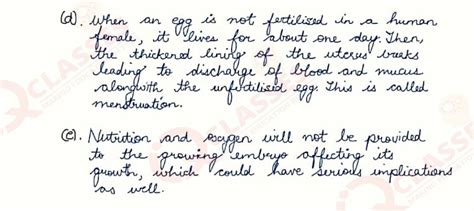 (d). When an egg is not fertilised in a human
female, it lives for about one day. Then,
the thickened lining of the uterus breaks
leading to discharge of blood and mucus
alongwith the unfertilised egg. This is called
menstruation.
(e). Nutrition and oxygen will not be provided
to the growing embryo affecting its
growth, which could have serious implications
as well.